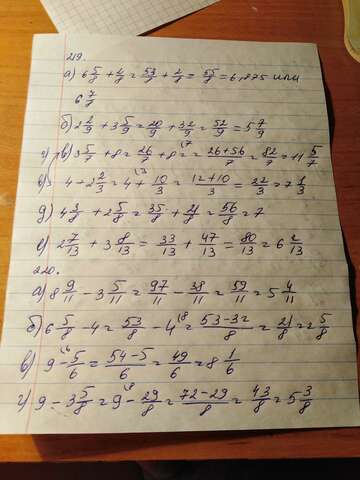 219.
а) 6 5/8 + 2/8 = 53/8 + 2/8 = 55/8 = 6,875 или
6 7/8
б) 2 2/9 + 3 5/9 = 20/9 + 32/9 = 52/9 = 5 7/9
в) 3 5/7 + 8 = 26/7 + 8 = 26+56/7 = 82/7 = 11 5/7
4 + 3 1/3 = 4 + 10/3 = 12+10/3 = 22/3 = 7 1/3
д) 4 3/8 + 2 5/8 = 35/8 + 21/8 = 56/8 = 7
е) 2 7/13 + 3 8/13 = 33/13 + 47/13 = 80/13 = 6 2/13
220.
а) 8 9/11 - 3 5/11 = 97/11 - 38/11 = 59/11 = 5 4/11
б) 6 5/8 - 4 = 53/8 - 4 = 53-32/8 = 21/8 = 2 5/8
в) 9 - 5/6 = 54-5/6 = 49/6 = 8 1/6
г) 9 - 3 5/8 = 9 - 29/8 = 72-29/8 = 43/8 = 5 3/8